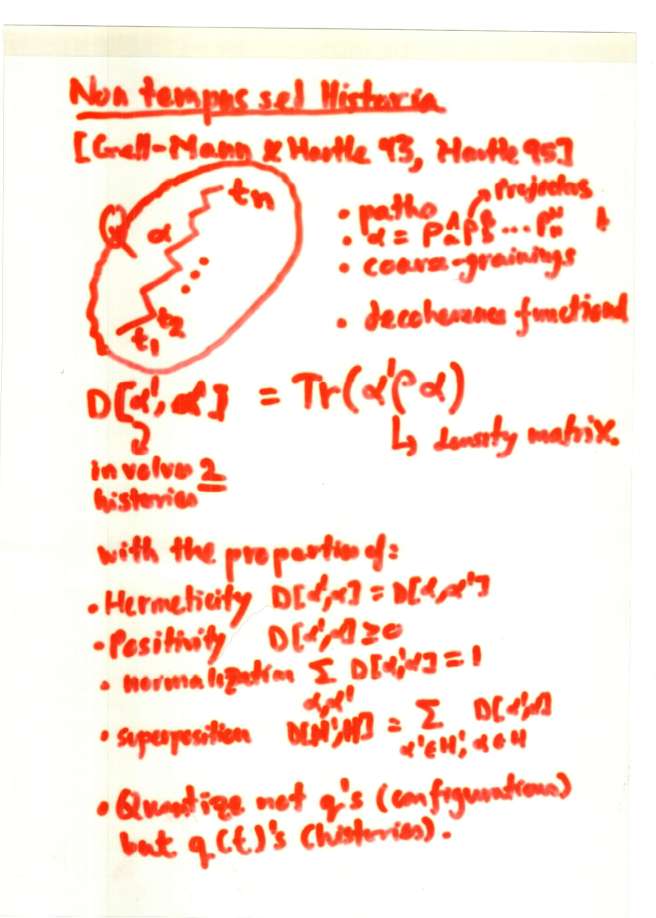 Non tempus sed Historia
[Gell-Mann & Hartle 93, Hartle 95]
Q α t₁ t₂ ... tn
• paths → Projectors
• α = P^A_a P^B_b ... P^N_n ↓
• coarse-grainings
• decoherence functional
D[α', α] = Tr(α'ρα)
↳ density matrix.
involves 2
histories
with the properties of:
• Hermeticity D[α',α] = D[α,α']
• Positivity D[α',α] ≥ 0
• normalization Σ D[α',α] = 1
α,α'
• superposition D[H',H] = Σ D[α',α]
α'∈H', α∈H
• Quantize not q's (configurations)
but q(t)'s (histories).